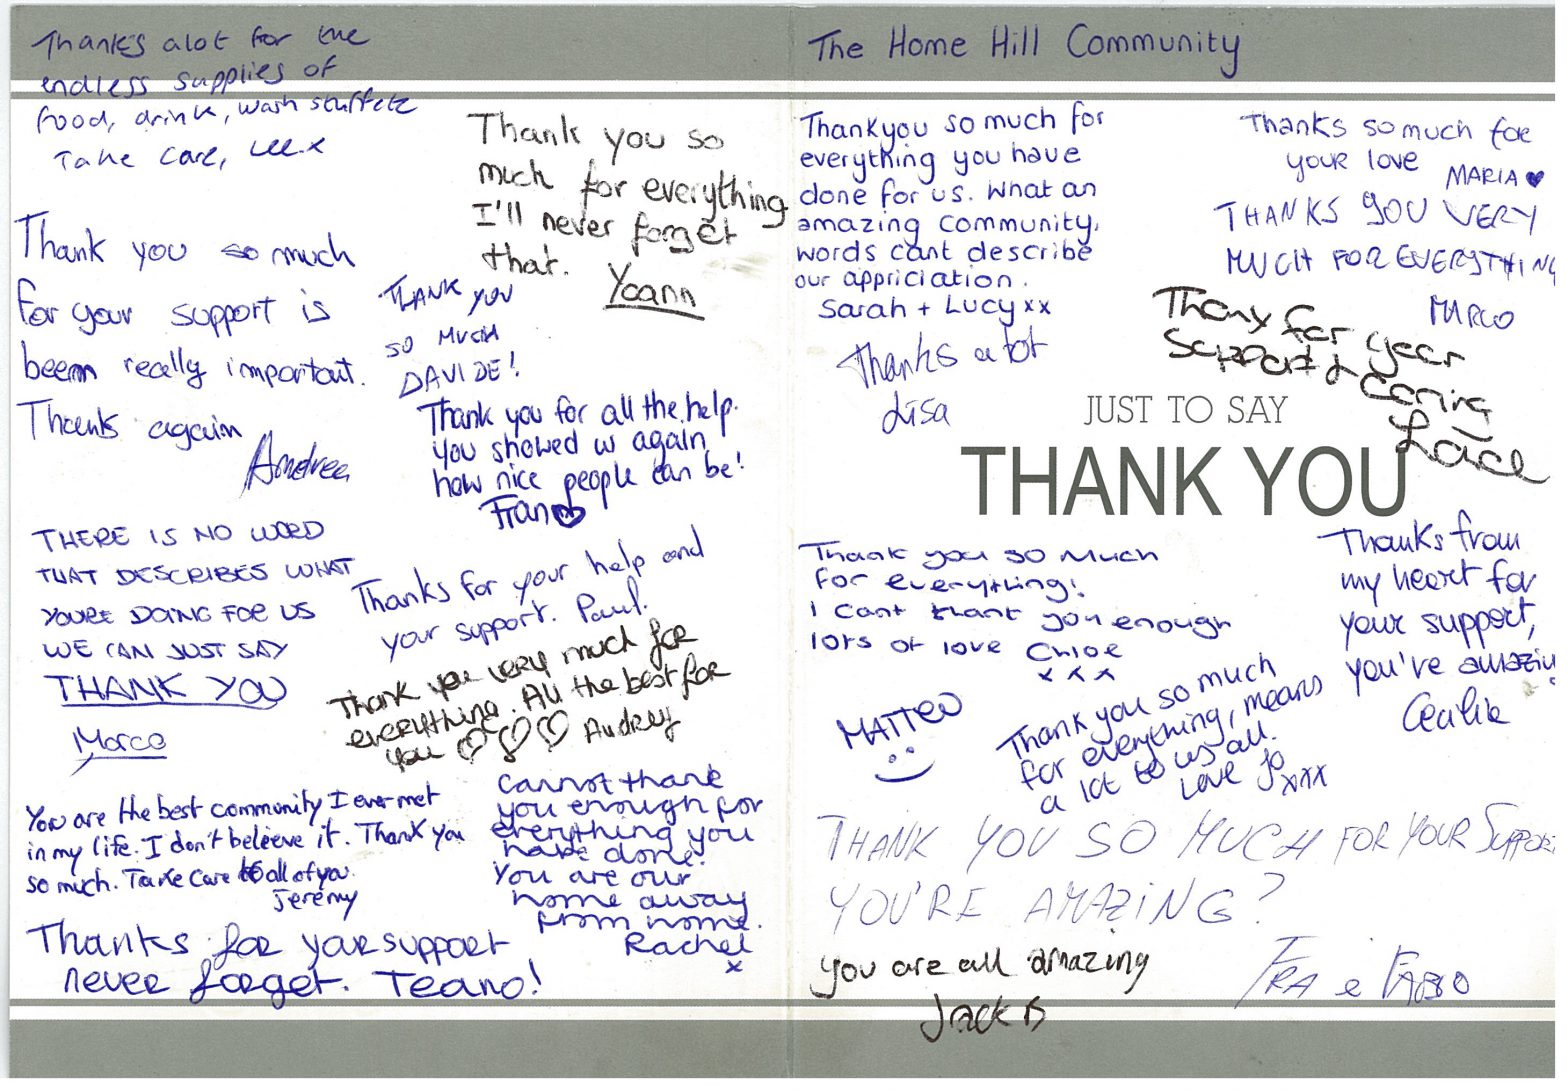 Thanks alot for the
endless supplies of
food, drink, wash stuff etc
Take care, Lee x
Thank you so
much for everything
I'll never forget
that.
Yoann
Thank you so much
for your support is
beem really important.
Thanks again
Andrea
THANK YOU
SO MUCH
DAVIDE!
Thank you for all the help.
You showed us again
how nice people can be!
Fran
THERE IS NO WORD
THAT DESCRIBES WHAT
YOURE DOING FOR US
WE CAN JUST SAY
THANK YOU
Marco
Thanks for your help and
your support. Paul.
Thank you very much for
everything. All the best for
you ♡♡♡ Audrey
You are the best community I ever met
in my life. I don't beleeve it. Thank you
so much. Take care to all of you.
Jeremy
Cannot thank
you enough for
everything you
have done.
You are our
home away
from home.
Rachel
x
Thanks for your support
never forget. Teano!
The Home Hill Community
Thankyou so much for
everything you have
done for us. What an
amazing community,
words cant describe
our appriciation.
Sarah + Lucy xx
Thanks so much for
your love
MARIA ♥
THANKS YOU VERY
MUCH FOR EVERYTHING
MARCO
Thanks a lot
Lisa
Thanx for your
support & caring
JUST TO SAY
THANK YOU
Thank you so much
for everything!
I cant thank you enough
lots of love Chloe
x x x
Thanks from
my heart for
your support,
you're amazin
Cecilie
MATTEO
Thank you so much
for everything, means
a lot to us all.
Love Jo
xxx
THANK YOU SO MUCH FOR YOUR SUPPORT
YOU'RE AMAZING?
FRA e FABIO
you are all amazing
Jack B